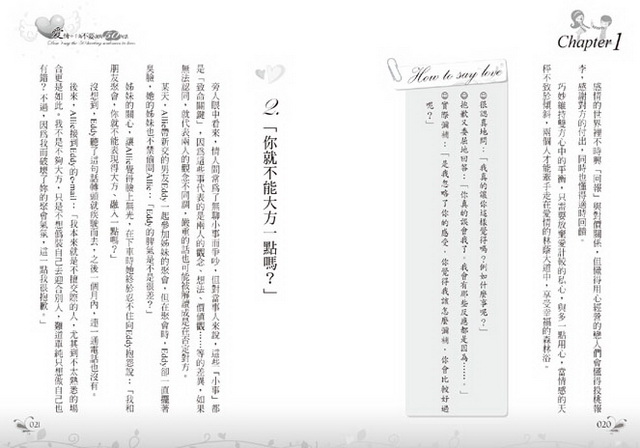 Chapter 1
感情的世界裡不時需「回報」與對價關係，但懂得用心經營的戀人們會懂得投桃報
李，感謝對方的付出，同時也懂得適時回饋。
巧妙維持雙方心中的平衡，只需要放棄愛計較的私心，與多一點用心，當情感的天
秤不致於傾斜，兩個人才能牽手走在愛情的林蔭大道中，享受幸福的森林浴。
How to say love
很認真地問：「我真的讓你這樣覺得嗎？例如什麼事呢？」
抱歉又委屈地回答：「你真的誤會我了，我會有那些反應都是因為……。」
實際彌補：「是我忽略了你的感受，你覺得我該怎麼彌補，你會比較好過
呢？」
020
2.「你就不能大方一點嗎？」
旁人眼中看來，情人間常為了無聊小事而爭吵，但對當事人來說，這些「小事」都
是「致命關鍵」，因為這些事代表的是兩人的觀念、想法、價值觀……等的差異，如果
無法認同，就代表兩人的觀念不同調，嚴重的話也可能被解讀成是在否定對方。
某天，Allie帶新交的男友Eddy一起參加姊妹的聚會，但在聚會時，Eddy卻一直擺著
臭臉，她的姊妹也不禁偷問Allie：「Eddy的脾氣是不是很差？」
姊妹的關心，讓Allie覺得臉上無光，在下車時她終於忍不住向Eddy抱怨說：「我和
朋友聚會，你就不能表現得大方、融入一點嗎？」
沒想到，Eddy聽了這句話轉頭就疾駛而去，之後一個月內，連一通電話也沒有。
後來，Allie接到Eddy的e-mail：「我本來就是不擅交際的人，尤其到不太熟悉的場
合更是如此。我不是不夠大方，只是不想偽裝自己去迎合別人，難道單純只想做自己也
有錯？不過，因為我而破壞了妳的聚會氣氛，這一點我很抱歉。」
021